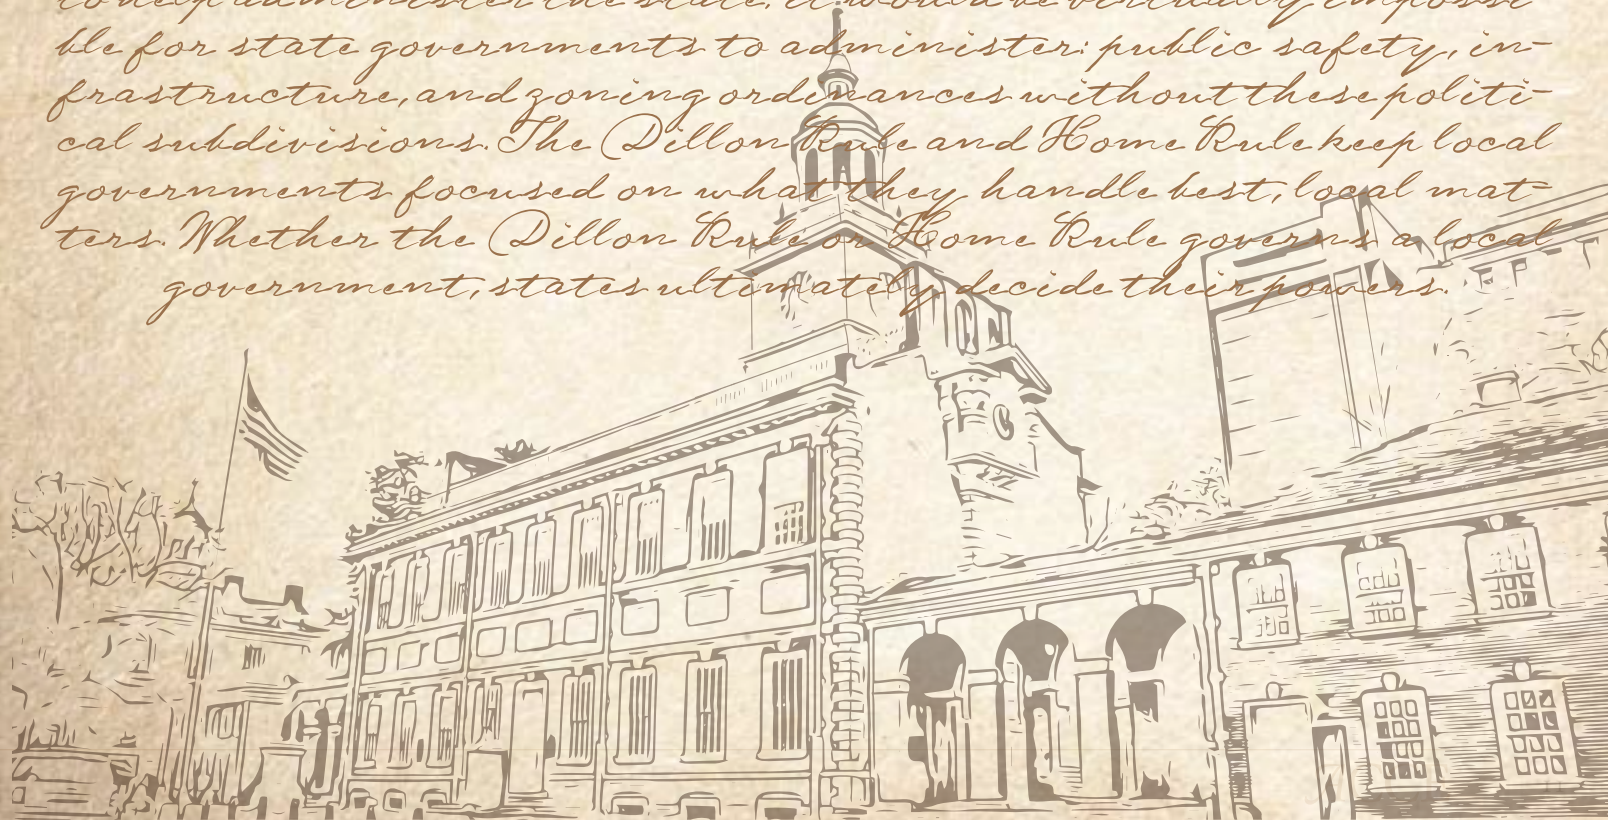 to help administer the state. It would be virtually impossi
ble for state governments to administer: public safety, in-
frastructure, and zoning ordinances without these politi-
cal subdivisions. The Dillon Rule and Home Rule keep local
governments focused on what they handle best, local mat-
ters. Whether the Dillon Rule or Home Rule governs a local
government, states ultimately decide their powers.